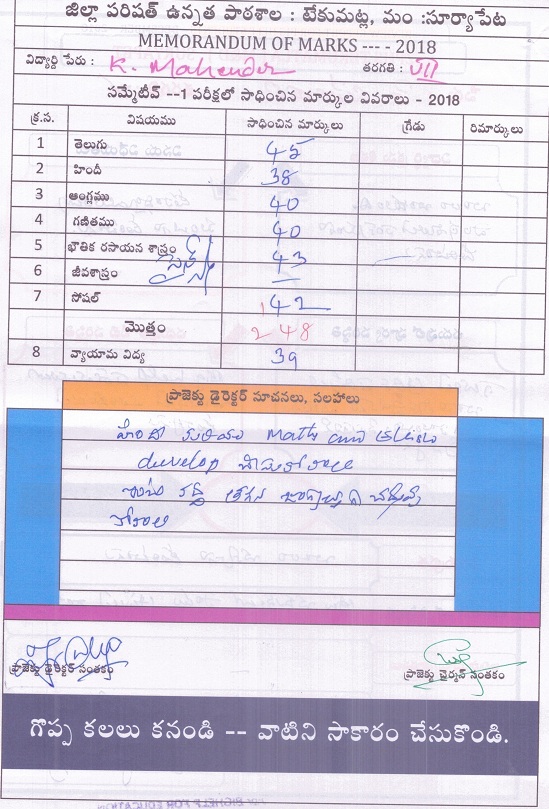 జిల్లా పరిషత్ ఉన్నత పాఠశాల : టేకుమట్ల, మం :సూర్యాపేట
MEMORANDUM OF MARKS --- - 2018
విద్యార్థి పేరు : K. Mahender తరగతి : VII
సమ్మేటీవ్ --1 పరీక్షలో సాధించిన మార్కుల వివరాలు - 2018
క్ర.స. విషయము సాధించిన మార్కులు గ్రేడు రిమార్కులు
1 తెలుగు 45
2 హిందీ 38
3 ఆంగ్లము 40
4 గణితము 40
5 భౌతిక రసాయన శాస్త్రం 43
6 జీవశాస్త్రం సైన్స్ —
7 సోషల్ 42
మొత్తం 248
8 వ్యాయామ విద్య 39
ప్రాజెక్టు డైరెక్టర్ సూచనలు, సలహాలు
హిందీ మరియు Maths and
develop చేసుకోవాలి
కోవాలి
ప్రాజెక్టు డైరెక్టర్ సంతకం
ప్రాజెక్టు చైర్మన్ సంతకం
గొప్ప కలలు కనండి -- వాటిని సాకారం చేసుకొండి.